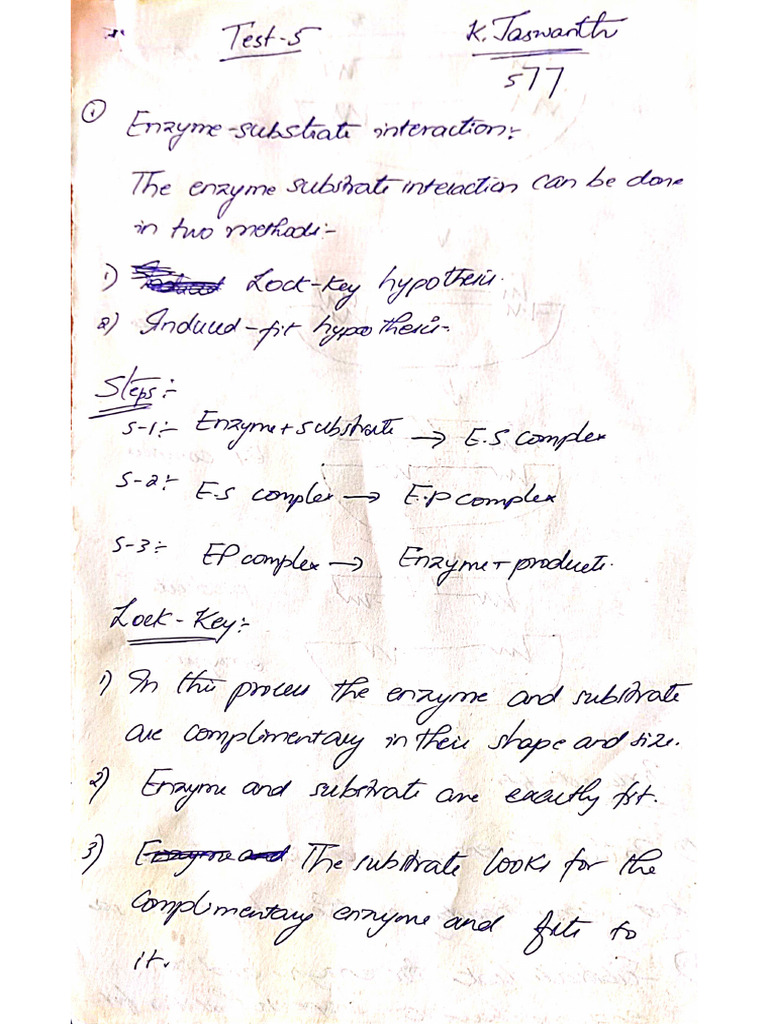 Test-5 K. Jaswanth
577
① Enzyme-substrate interaction:-
The enzyme substrate interaction can be done
in two methods:-
1) Lock-Key hypothesis.
2) Induced-fit hypothesis-
Steps:-
S-1:- Enzyme + substrate → E.S complex
S-2:- E.S complex → E.P complex
S-3:- EP complex → Enzyme + products.
Lock-Key:-
1) In this process the enzyme and substrate
are complimentary in their shape and size.
2) Enzyme and substrate are exactly fit.
3) Enzyme and The substrate looks for the
complimentary enzyme and fits to
it.